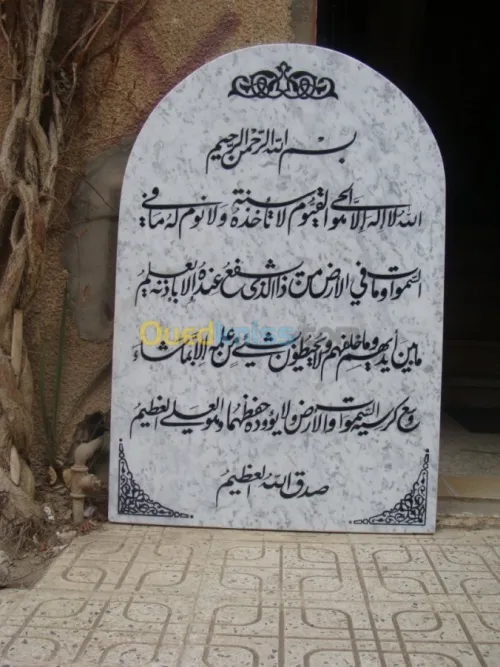 بسم الله الرحمن الرحيم
الله لا إله إلا هو الحي القيوم لا تأخذه سنة ولا نوم له ما في
السموات وما في الارض من ذا الذي يشفع عنده إلا بإذنه يعلم
ما بين أيديهم وما خلفهم ولا يحيطون بشيء من علمه إلا بما شاء
وسع كرسيه السموات والارض ولا يؤوده حفظهما وهو العلي العظيم
صدق الله العظيم